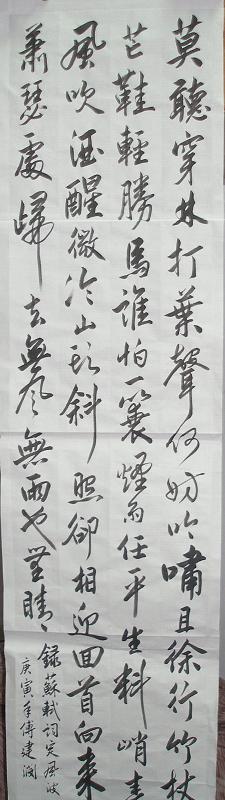 莫聽穿林打葉聲何妨吟嘯且徐行竹杖
芒鞋輕勝馬誰怕一蓑煙雨任平生料峭春
風吹酒醒微冷山頭斜照卻相迎回首向來
蕭瑟處歸去無风無雨也無晴
錄蘇軾詞定風波
庚寅年傅建